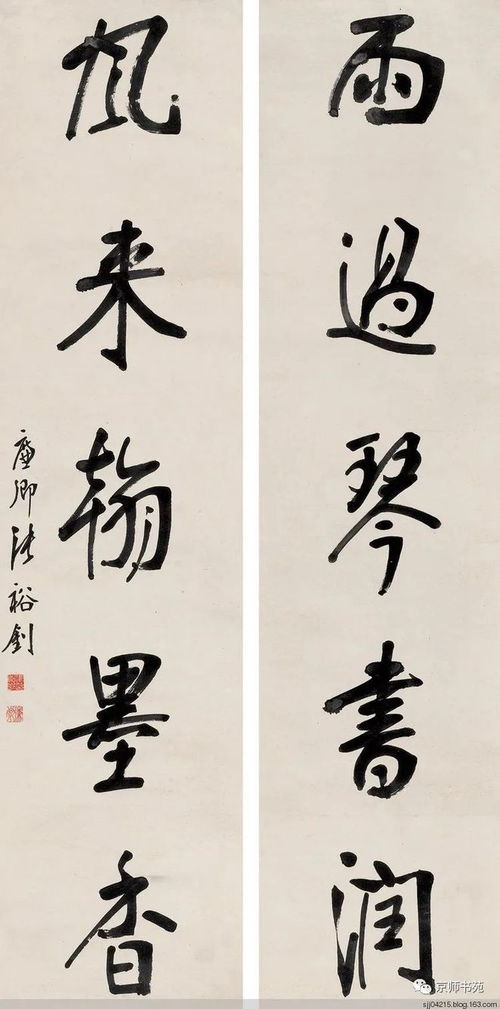 雨過琴書润
風来翰墨香
廉卿張裕釗
京师书苑
sjj04215.blog.163.com